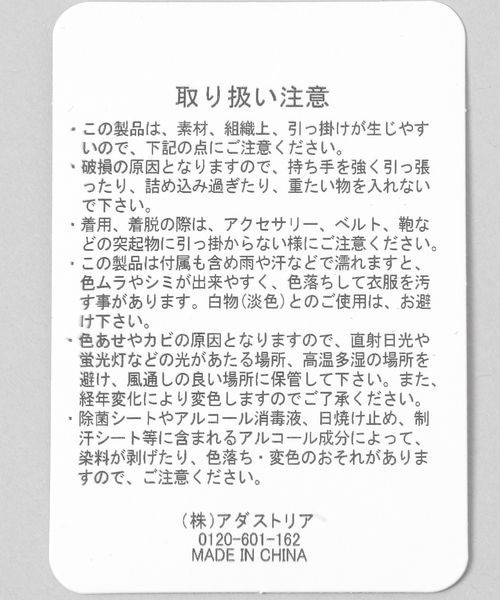 取り扱い注意
・この製品は、素材、組織上、引っ掛けが生じやす
いので、下記の点にご注意ください。
・破損の原因となりますので、持ち手を強く引っ張
ったり、詰め込み過ぎたり、重たい物を入れない
で下さい。
・着用、着脱の際は、アクセサリー、ベルト、鞄な
どの突起物に引っ掛からない様にご注意ください。
・この製品は付属も含め雨や汗などで濡れますと、
色ムラやシミが出来やすく、色落ちして衣服を汚
す事があります。白物(淡色)とのご使用は、お避
け下さい。
・色あせやカビの原因となりますので、直射日光や
蛍光灯などの光があたる場所、高温多湿の場所を
避け、風通しの良い場所に保管して下さい。また、
経年変化により変色しますのでご了承ください。
・除菌シートやアルコール消毒液、日焼け止め、制
汗シート等に含まれるアルコール成分によって、
染料が剥げたり、色落ち・変色のおそれがありま
すので、ご注意ください。
(株)アダストリア
0120-601-162
MADE IN CHINA